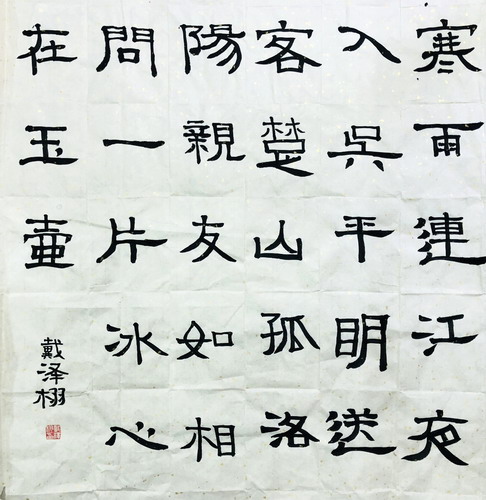 寒雨連江夜
入吳平明送
客楚山孤洛
陽親友如相
問一片冰心
在玉壺
戴泽栩